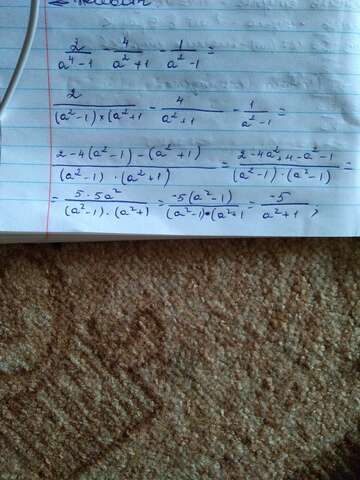 2/(a⁴-1) - 4/(a²+1) - 1/(a²-1) =
2/((a²-1)×(a²+1) - 4/(a²+1) - 1/(a²-1) =
(2-4(a²-1)-(a²+1))/((a²-1)·(a²+1)) = (2-4a²+4-a²-1)/((a²-1)·(a²-1)) =
= (5·5a²)/((a²-1)·(a²+1) = (-5(a²-1))/((a²-1)·(a²+1) = -5/(a²+1);